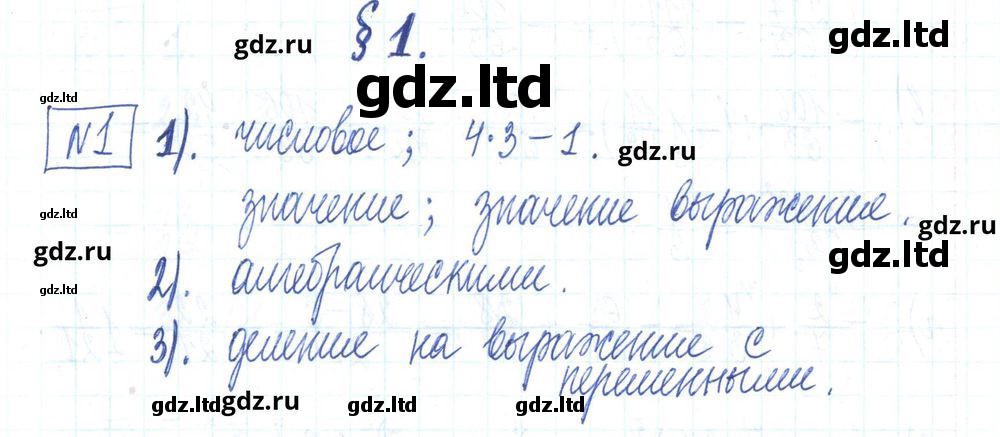 § 1.
gdz.ru
gdz.ltd
gdz.ltd
gdz.ltd
№1 1). числовое; 4·3-1.
gdz.ru
значение; значение выражение.
gdz.ltd
gdz.ru
gdz.ru
gdz.ltd
2). алгебраическими.
gdz.ltd
3). деление на выражение с
переменными.
gdz.ltd
gdz.ru
gdz.ltd
gdz.ru